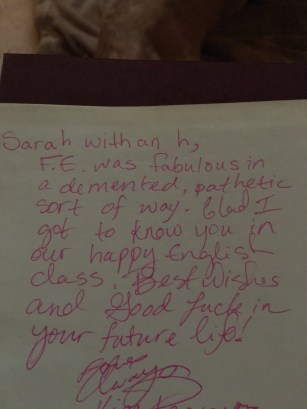 Sarah with an h,
F.E. was fabulous in
a demented, pathetic
sort of way. Glad I
got to know you in
our happy English
class. Best wishes
and Good luck in
your future life!
Always